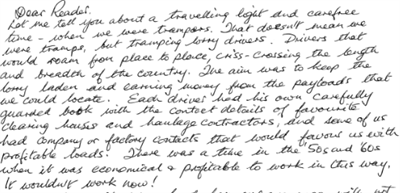 Dear Reader,
Let me tell you about a travelling light and carefree
time - when we were trampers. That doesn't mean we
were tramps, but tramping lorry drivers. Drivers that
would roam from place to place, criss-crossing the length
and breadth of the country. The aim was to keep the
lorry laden and earning money from the payloads that
we could locate. Each driver had his own carefully
guarded book with the contact details of favourite
clearing houses and haulage contractors, and some of us
had company or factory contacts that would favour us with
profitable loads! There was a time in the '50s and '60s
when it was economical & profitable to work in this way.
It wouldn't work now!
will not